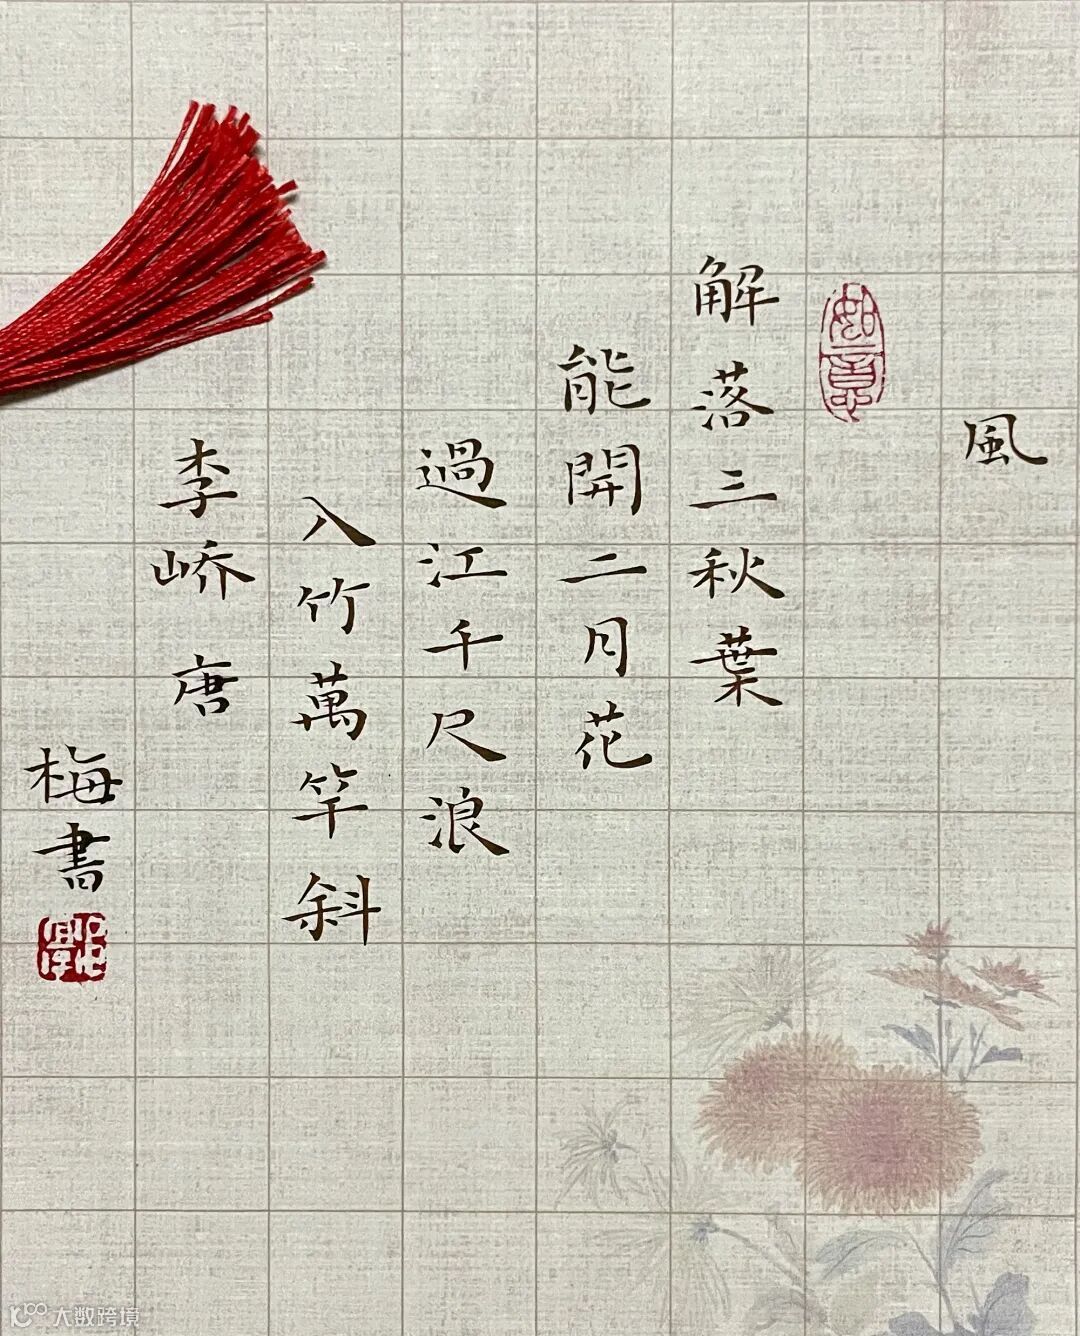 風
如意
解落三秋葉
能開二月花
過江千尺浪
入竹萬竿斜
李峤 唐
梅書
大数跨境